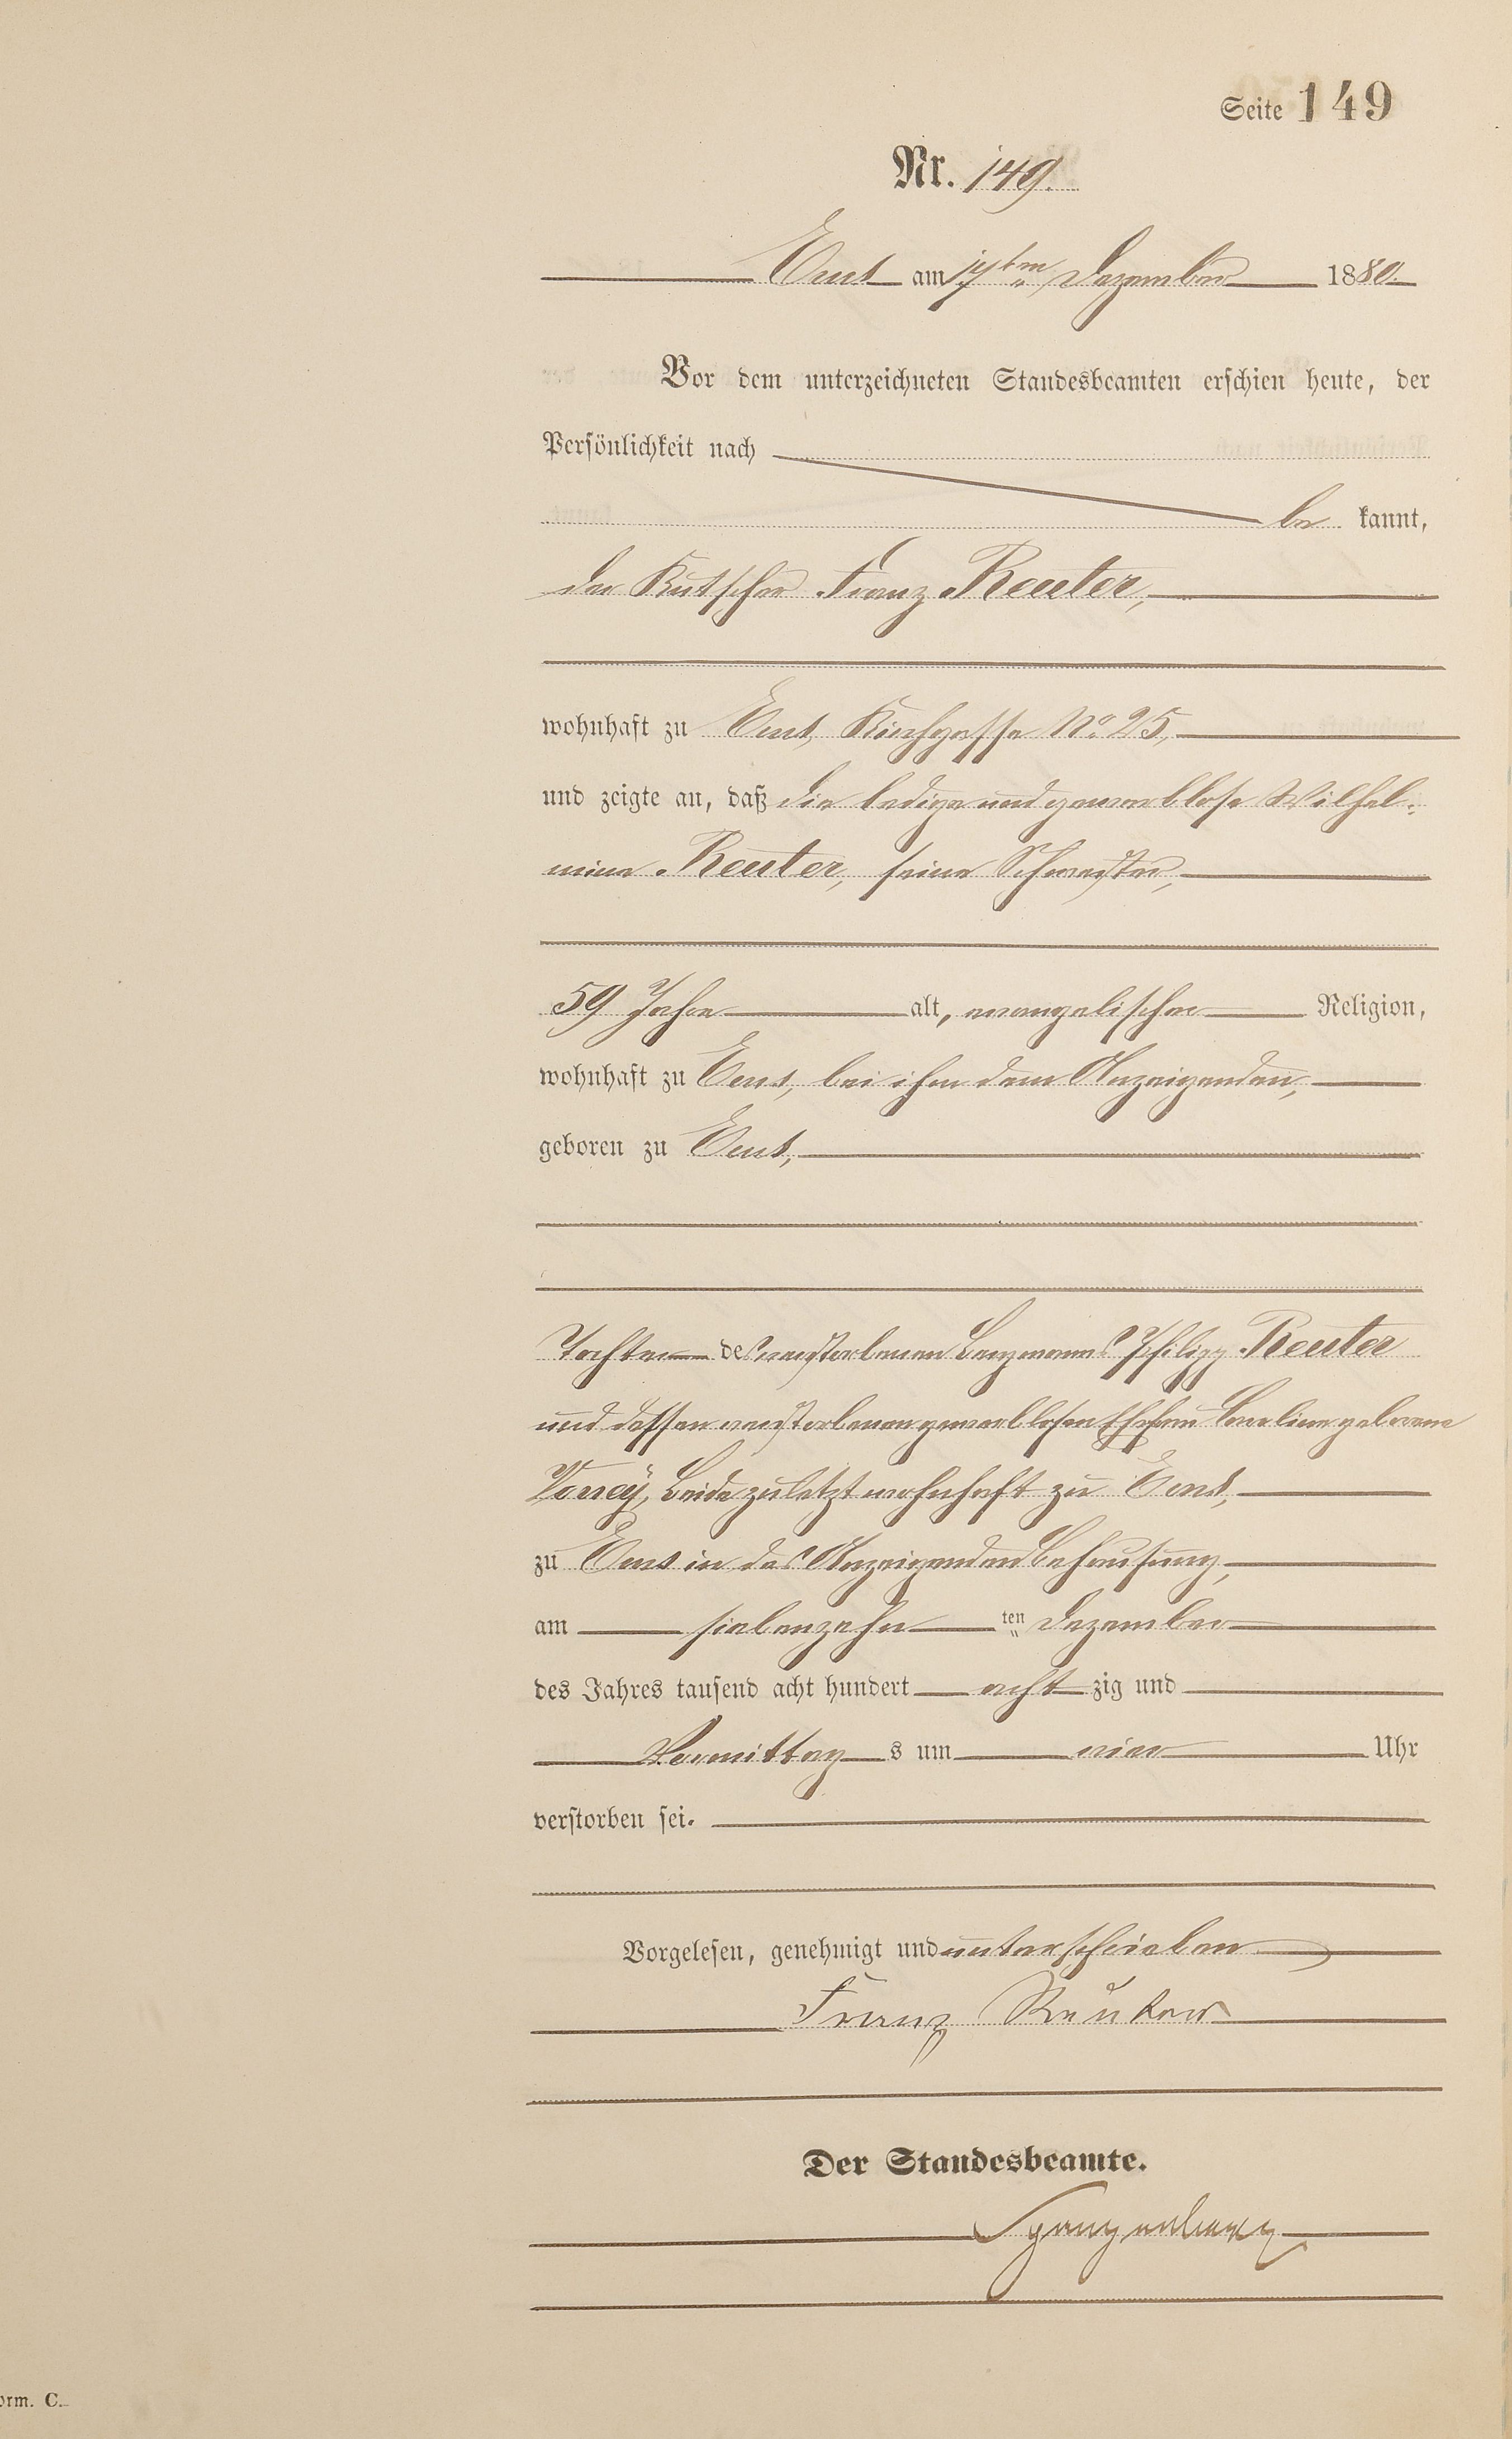 Seite 149
Nr. 149.
Ems am 17ten Dezember 1880.
Vor dem unterzeichneten Standesbeamten erschien heute, der
Persönlichkeit nach
be kannt,
der Kutscher Franz Reuter,
wohnhaft zu Ems, Kirchgasse No. 25,
und zeigte an, daß die ledige und gewerblose Wilhel-
mine Reuter, seine Schwester,
59 Jahre alt, evangelischer Religion,
wohnhaft zu Ems, bei ihm dem Anzeigenden,
geboren zu Ems,
Tochter des verstorbenen Bergmanns Philipp Reuter
und dessen verstorbenen gewerblosen Ehefrau geborene
beide zuletzt wohnhaft zu Ems,
zu Ems in des Anzeigenden Behausung,
am siebenzehn ten Dezember
des Jahres tausend acht hundert acht zig und
Vormittag s um vier Uhr
verstorben sei.
Vorgelesen, genehmigt und unterschrieben
Franz Reuter
Der Standesbeamte.
Spangenberg
orm. C.